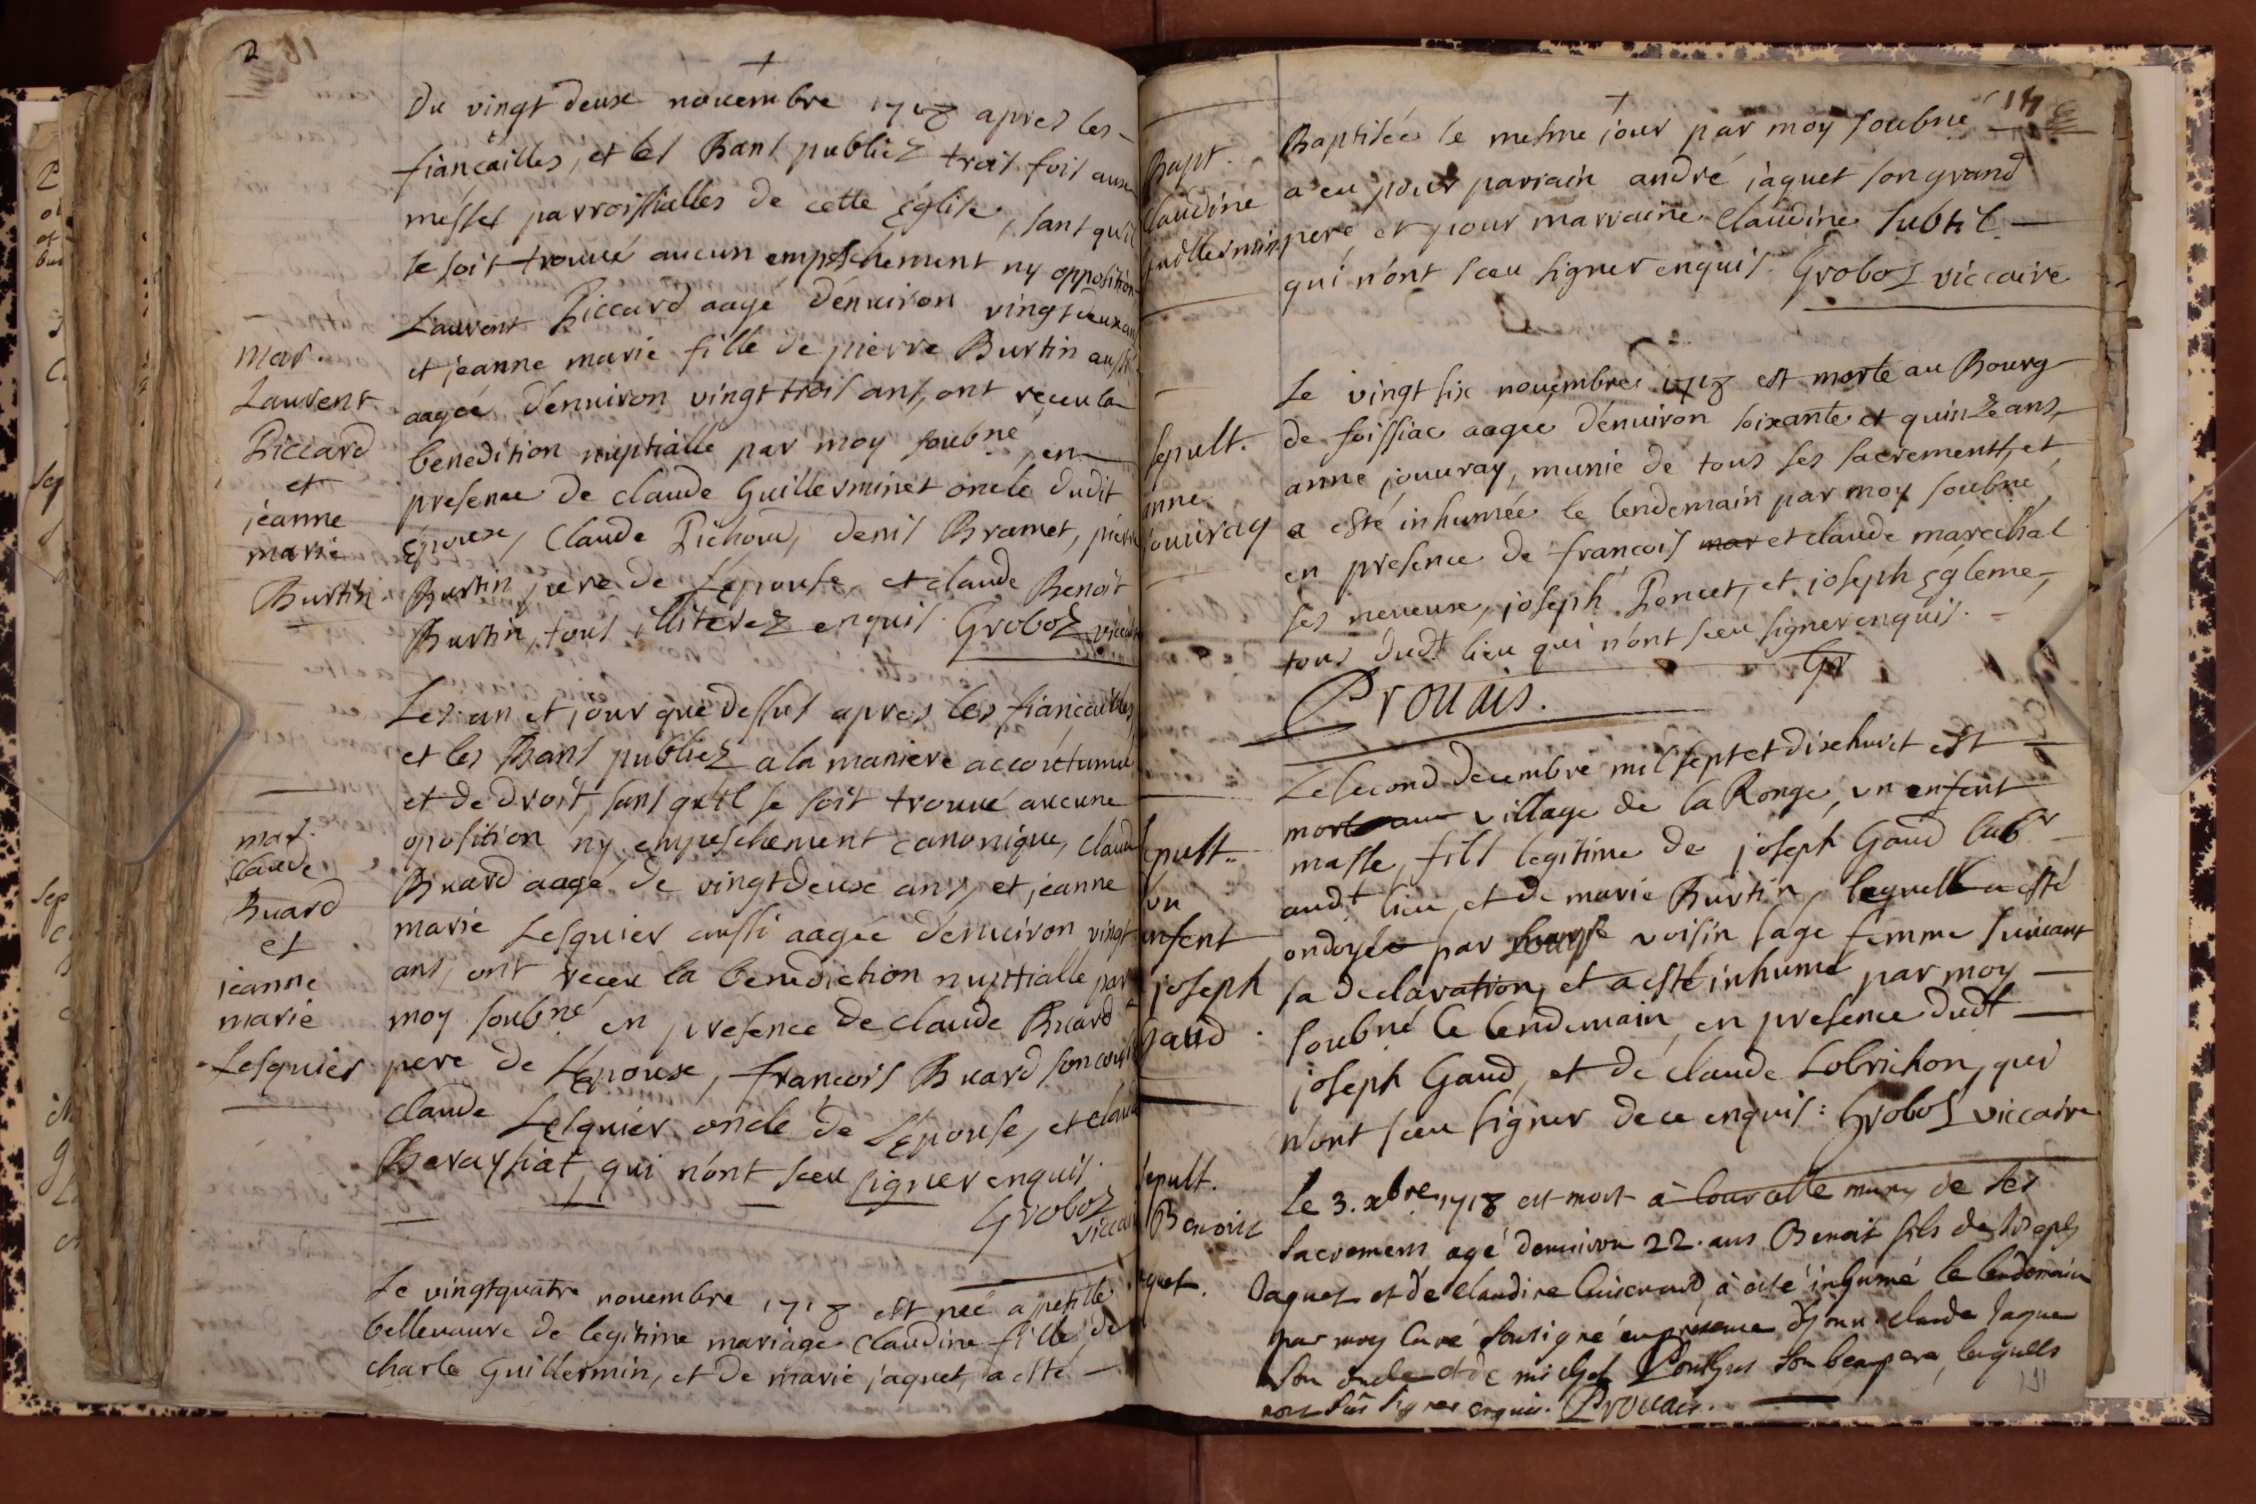 Du vingt deux novembre 1718 apres les
fiancailles, et les Bans publiez trois fois aux
messes parroissialles de cette Eglise, sans qu'il
se soit trouué aucun empeschement ny opposition
Laurent Piccard aagé d'enuiron vingt deux ans
et jeanne marie fille de pierre Burtin aussi
aagée d'enuiron vingt trois ans, ont receu la
benedition nuptialle par moy soubné, en
presence de claude Guillerminet oncle dudit
Epoux, Claude Pichoud, denis Bramet, pierre
Burtin pere de L'epouse, et claude Benoit
Burtin, tous illiterez enquis. Groboz viccaire
mar.
Laurent
Piccard
et
jeanne
marie
Burtin
Les an et jour que dessus apres les fiancailles
et les Bans publiez a la maniere accoutumée
et de droit, sans qu'il se soit trouué aucune
oposition ny empeschement canonique, claude
Buard aagé de vingt deux ans, et jeanne
marie Lesquier aussi aagée d'enuiron vingt
ans, ont receu la benediction nuptialle par
moy soubné en presence de claude Buard
pere de L'Epoux, francois Buard son cousin
claude Lesquier oncle de L'Epouse, et claude
Berayhiat, qui n'ont sceu signer enquis.
Groboz
viccaire
mar.
Claude
Buard
et
jeanne
marie
Lesquier
Le vingtquatre novembre 1718 est neé a petitte
belleuaure de legitime mariage Claudine fille de
charle Guillermin, et de marie jaquet, a esté
141
Bapt.
Claudine
Guillermin
Baptisée le mesme jour par moy soubné
a eu pour parrain andré jaquet son grand
pere, et pour marraine Claudine Subtil
qui n'ont sceu signer enquis. Groboz viccaire
Sepult.
anne
jouuray
Le vingt six nouembre 1718 est morte au Bourg
de foissiac aagée d'enuiron soixante et quinze ans,
anne jouuray, munie de tous ses sacrements, et
a esté inhumée le lendemain par moy soubné
en presence de francois mar et claude marechal
ses neueux, joseph Poncet, et joseph Egleme,
tous dudt lieu qui n'ont sceu signer enquis.
Gr
Prouais.
Sepult.
vn
enfent
joseph
Gaud
Le second decembre mil sept et dixhuit est
mort au village de la Ronge, vn enfent
masle, fils legitime de joseph Gaud labr
audt lieu, et de marie Burtin, lequel a esté
ondoyée par voisin sage femme suiuant
sa declaration, et a esté inhumé par moy
soubné le lendemain en presence dudt
joseph Gaud, et de claude Lobrichon, qui
n'ont sceu signer de ce enquis: Groboz viccaire
Sepult.
Benoist
jaquet.
Le 3. xbre 1718 est mort à muny de ses
sacremens agé denuiron 22. ans Benoit fils de Joseph
Jaquet et de claudine à esté inhumé le lendemain
par moy Curé Sousigné en presence claude Jaquet
son oncle et de michel son beaupere, lesquels
nont sceu signer enquis. Prouais.